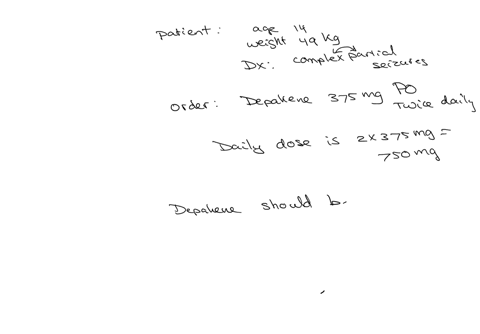 patient: age 14
weight 49 kg
Dx: complex partial
seizures
order: Depakene 375 mg PO
twice daily
Daily dose is 2 x 375 mg =
750 mg
Depakene should b